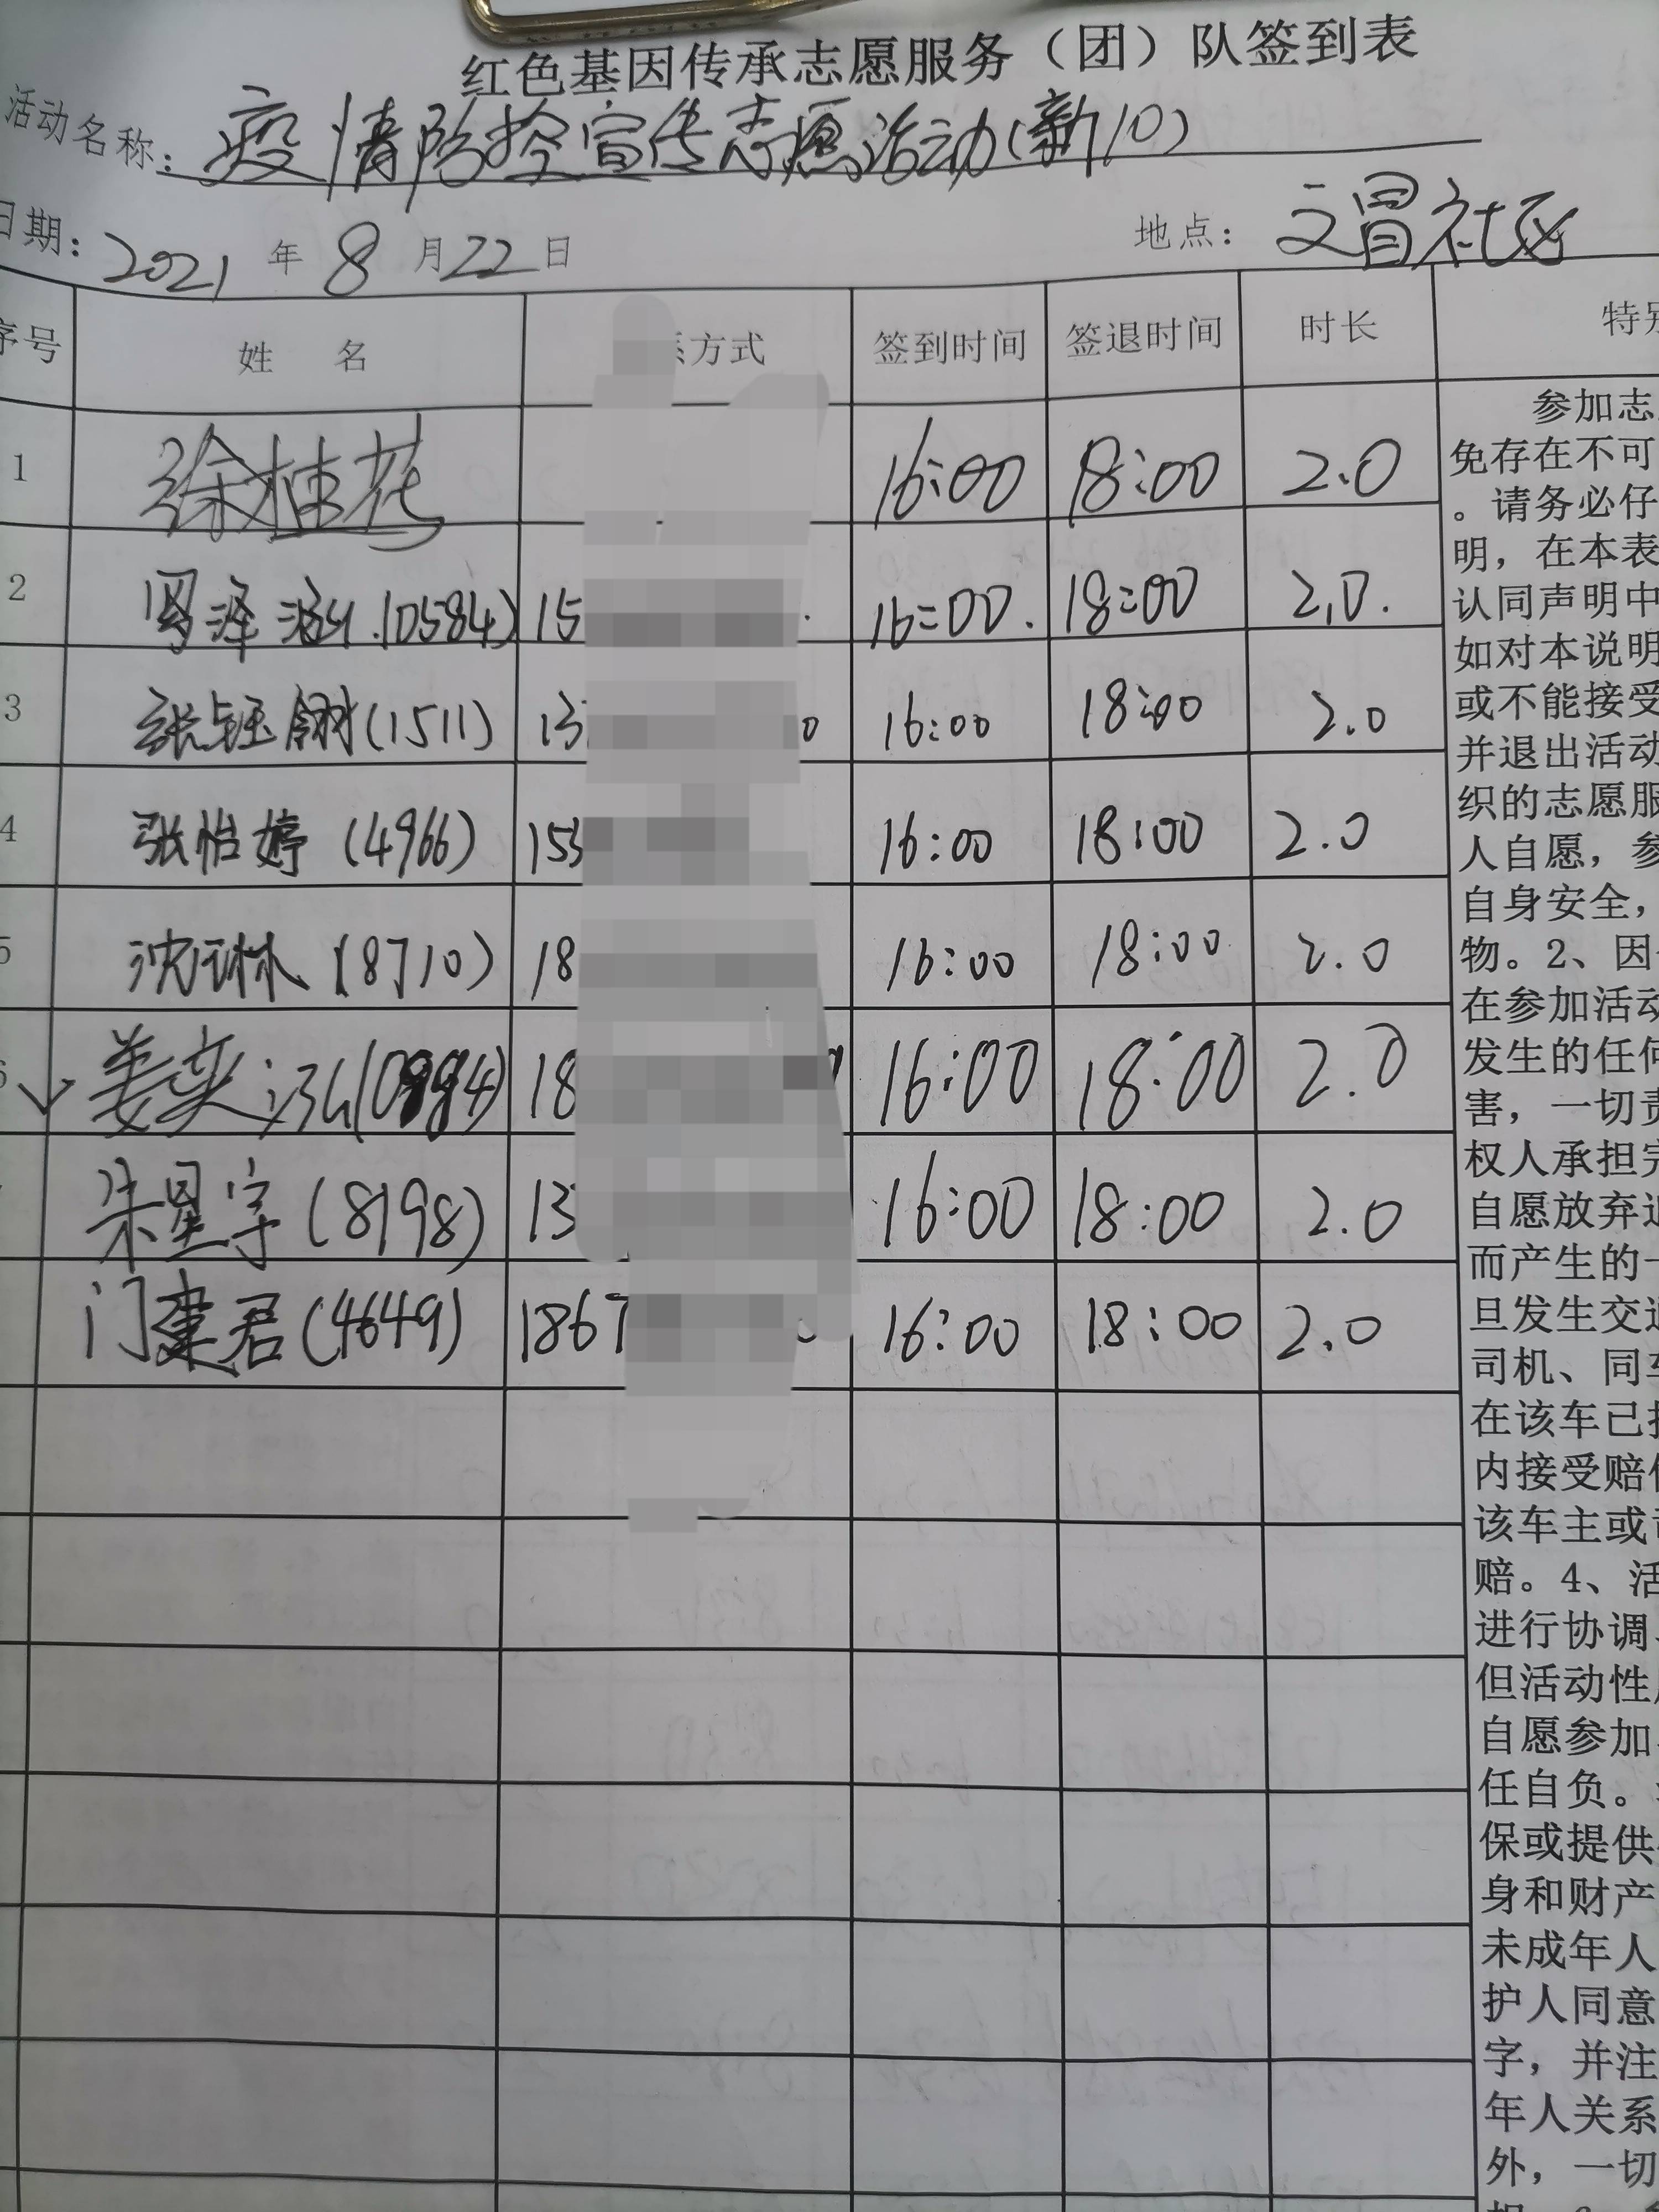 红色基因传承志愿服务（团）队签到表
活动名称：疫情防控宣传志愿活动(新10)
日期：2021年8月22日 地点：文昌社区
序号 姓 名 系方式 签到时间 签退时间 时长 特别
1 徐桂花 16:00 18:00 2.0
2 罗泽涵(10584) 15 16:00. 18:00 2.0.
3 张钰翎(1511) 13 0 16:00 18:00 2.0
4 张怡婷(4966) 153 16:00 18:00 2.0
5 沈琳(8710) 18 16:00 18:00 2.0
6 姜奕泓(10994) 18 16:00 18:00 2.0
朱星宇(8198) 13 16:00 18:00 2.0
门建君(4649) 1867 16:00 18:00 2.0
参加志
免存在不可
。请务必仔
明，在本表
认同声明中
如对本说明
或不能接受
并退出活动
织的志愿服
人自愿，参
自身安全，
物。2、因
在参加活动
发生的任何
害，一切责
权人承担完
自愿放弃追
而产生的一
旦发生交通
司机、同车
在该车已投
内接受赔偿
该车主或司
赔。4、活
进行协调、
但活动性质
自愿参加
任自负。
保或提供
身和财产
未成年人
护人同意
字，并注
年人关系
外，一切